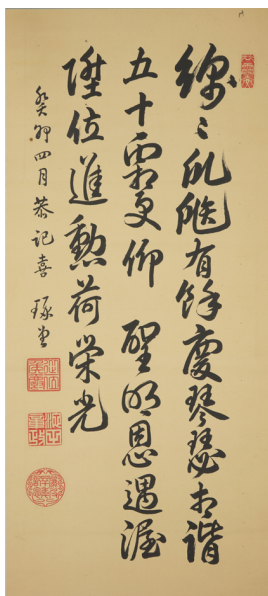 綿〻瓜瓞有餘慶琴瑟相諧
五十霜更仰 聖明恩遇渥
陞位進勲荷栄光
癸卯四月恭記喜 琢堂